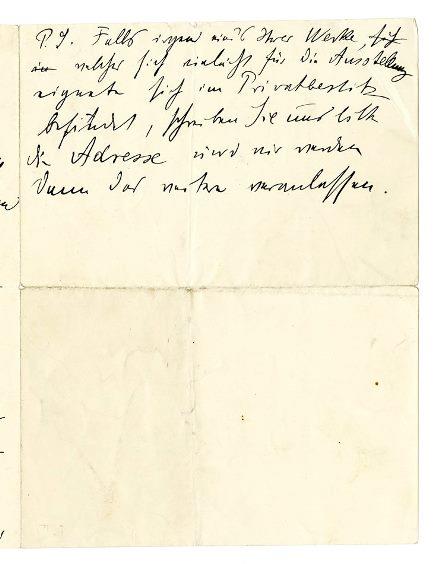 P.S. Falls irgend eines Ihrer Werke,
welches sich vielleicht für die Ausstellung
eignete sich im Privatbesitz
befindet, schreiben Sie uns bitte
die Adresse und wir werden
dann das weitere veranlassen.